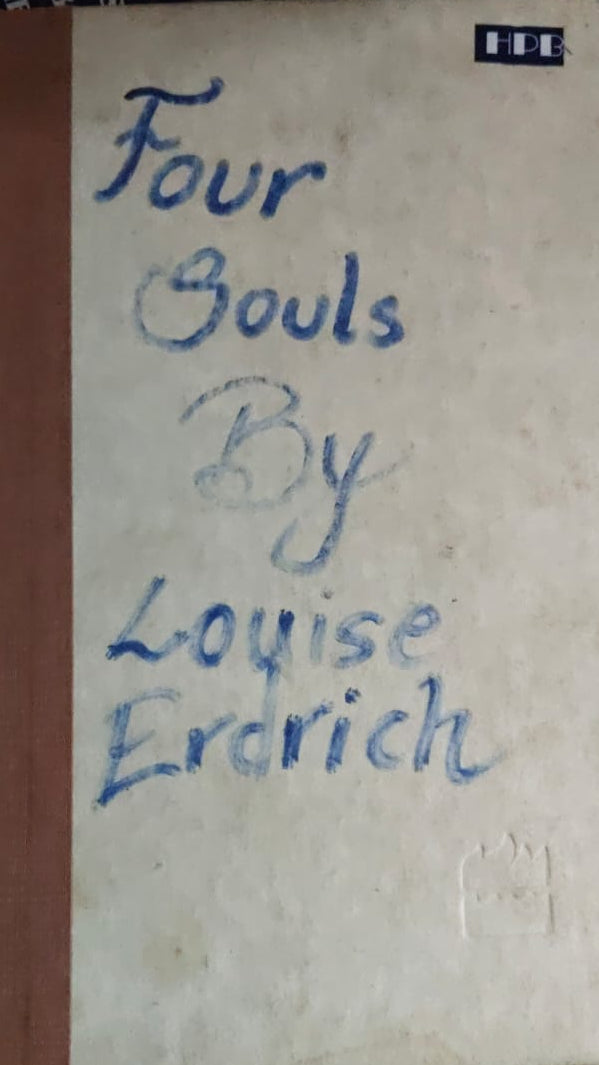 HPB
Four
Souls
By
Louise
Erdrich